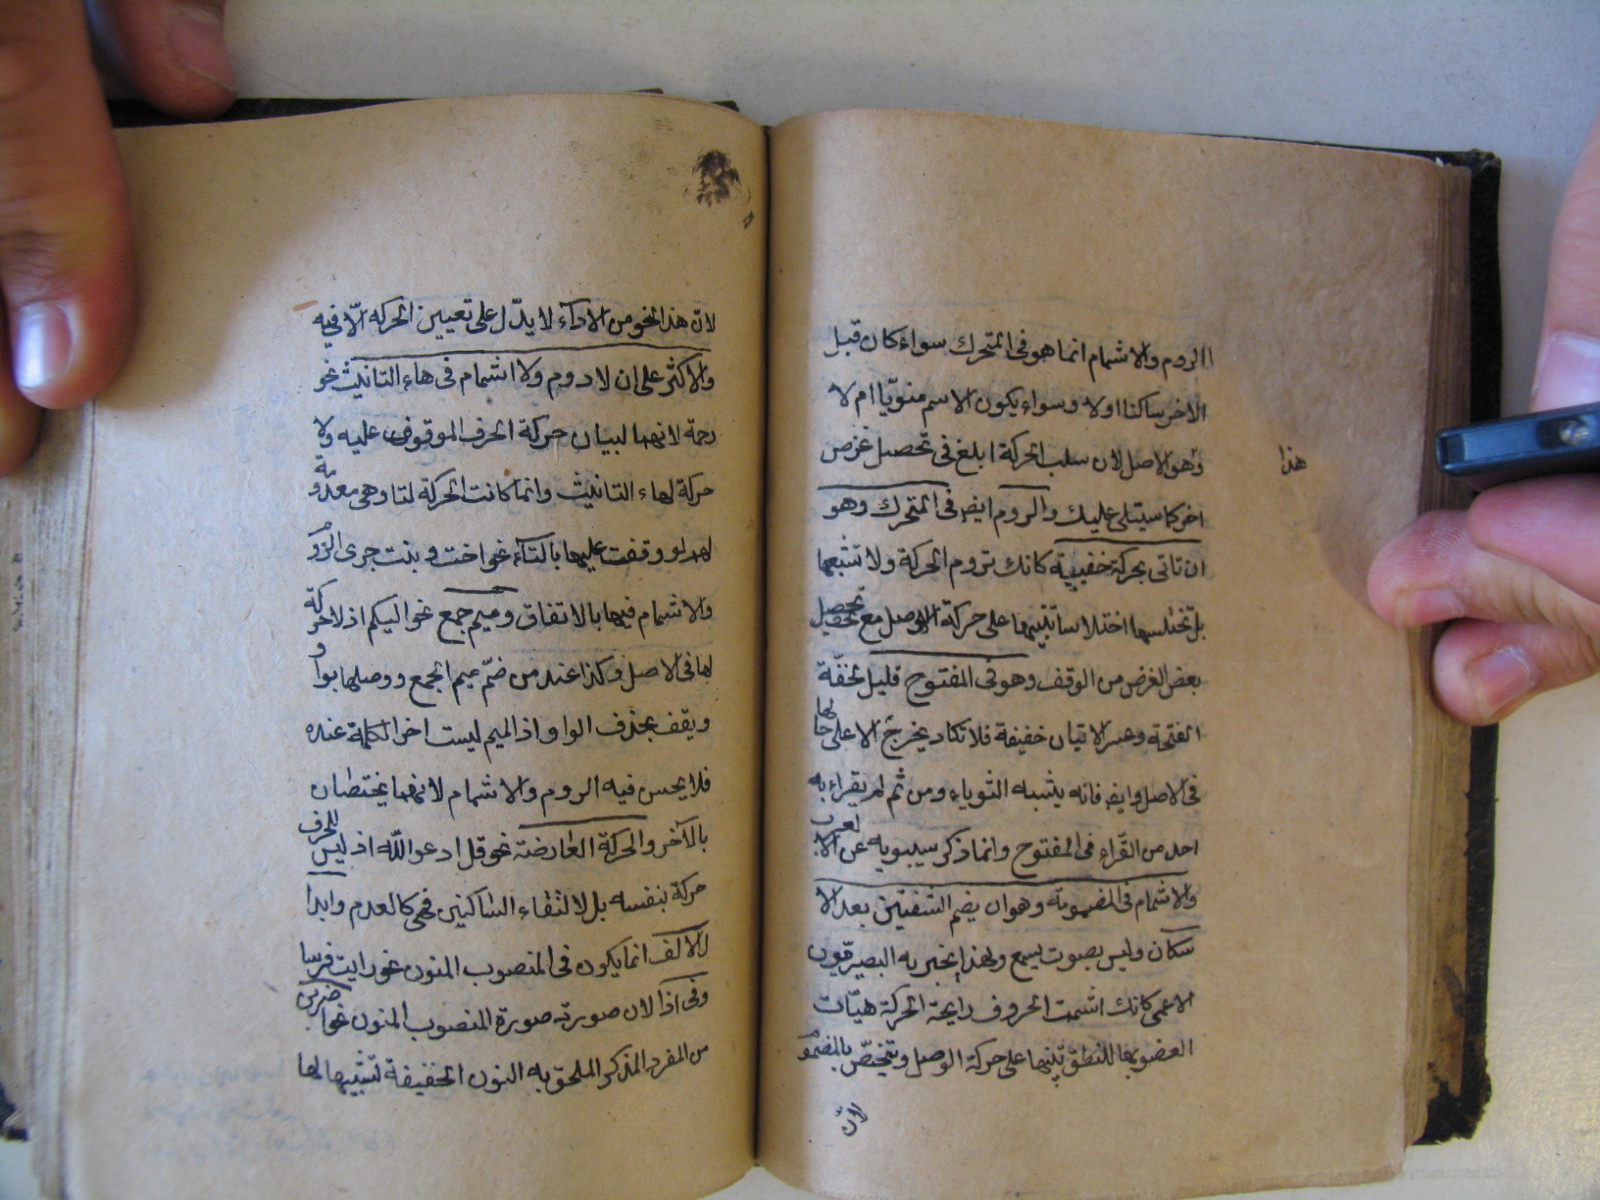 الروم والاشمام انما هو فى المتحرك سواء كان قبل
الاخر ساكنا اولا وسواء يكون الاسم منوّنا ام لا
وهو الاصل لان سلب الحركة ابلغ فى تحصيل غرض
هذا
اخر كما سيتلى عليك والروم ايضا فى المتحرك وهو
ان تاتى بحركة خفيية كانك تروم الحركة ولا تشبعها
بل تختلسها اختلاسا تنبيها على حركة الاصل مع تحصيل
بعض الغرض من الوقف وهو فى المفتوح قليل لخفّة
الفتحة وعسر الاتيان خفيفة فلا تكاد يخرج الا على حالها
فى الاصل وايضا فانه يشبه الثوباء ومن ثم لم يقراء به
احد من القراء فى المفتوح وانما ذكر سيبويه عن العرب
والاشمام فى المضمومة وهو ان يضم الشفتين بعد الا
سكان وليس بصوت يسمع ولهذا يخبر به البصير دون
الاعمى كانك اشممت الحروف رايحة الحركة هيّات
العضو بها للنطق تنبيها على حركة الوصل ويختصّ بالمضموم
لانّ
لانّ هذا النحو من الاداء لا يدّل على تعيين الحركة الّا فيه
والاكثر على ان لا روم ولا اشمام فى هاء التانيث نحو
رحمة لانهما لبيان حركة الحرف الموقوف عليه ولا
حركة لهاء التانيث وانما كانت الحركة لتا وهى معدومة
لهد لو وقفت عليها بالتاء نحو اخت وبنت جرى الروم
والاشمام فيها بالاتفاق وميم جمع نحو اليكم اذ لا حركة
لها فى الاصل وكذا عند من ضمّ ميم الجمع ووصلها بواو
ويقف بحذف الواو اذ الميم ليست اخر الكلمة عنده
فلا يحسن فيه الروم والاشمام لانهما يختصان
بالآخر والحركة العارضة نحو قل ادعو اللّه اذ ليس للحرف
حركة بنفسه بل لالتقاء الساكنين فهى كالعدم وابدا
ل الالف انما يكون فى المنصوب المنون نحو رايت فرسا
وفى اذا لان صورته صورة المنصوب المنون نحو اضربن
من المفرد المذكر الملحق به النون الخفيفة تشبيها لها